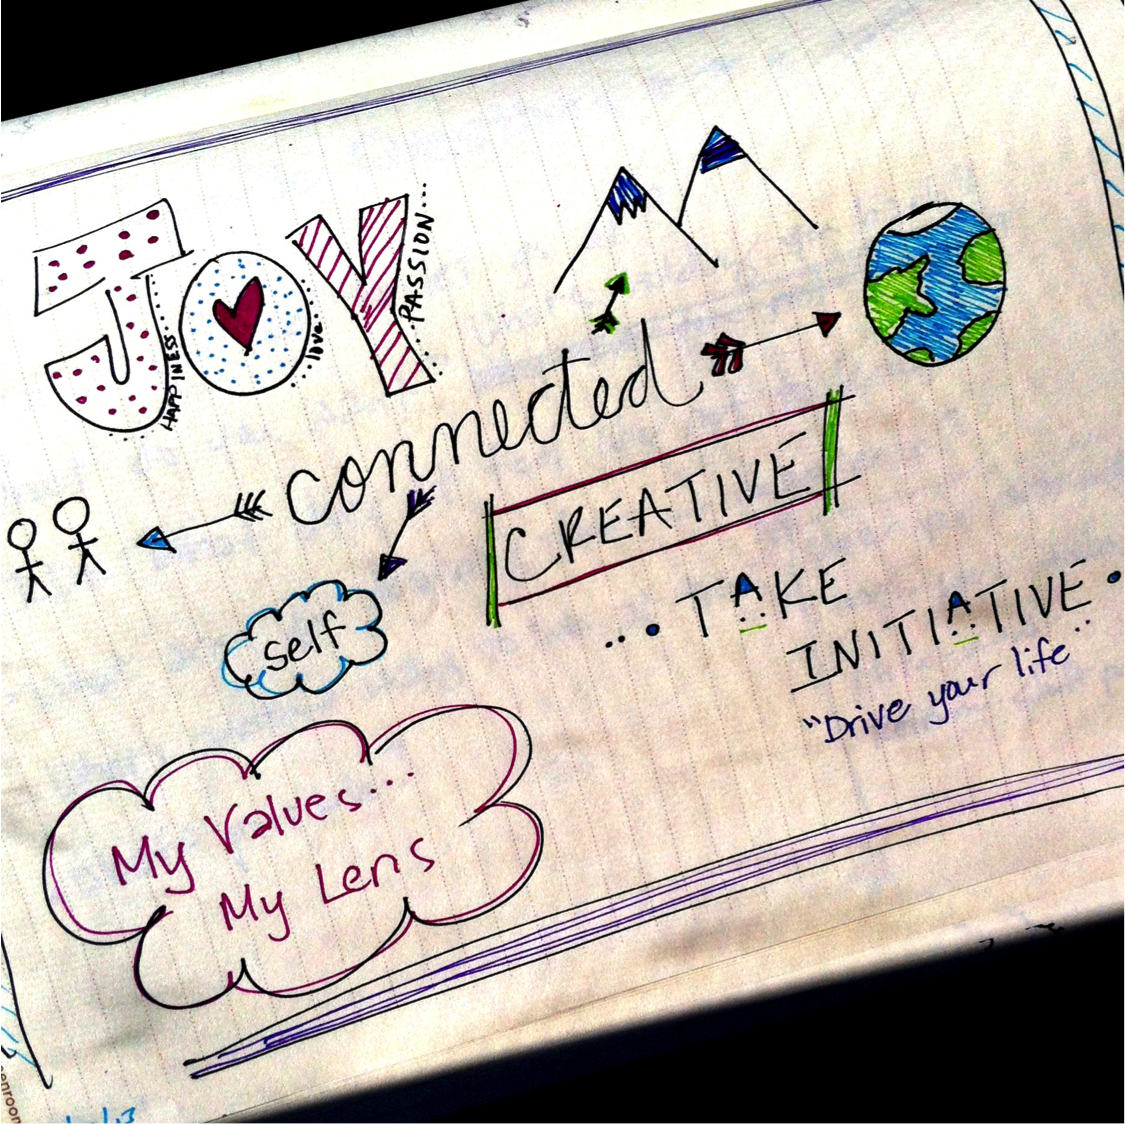 JOY
HAPPINESS
love
PASSION...
connected
CREATIVE
self
... TAKE
INITIATIVE.
"Drive your life"
My Values...
My Lens